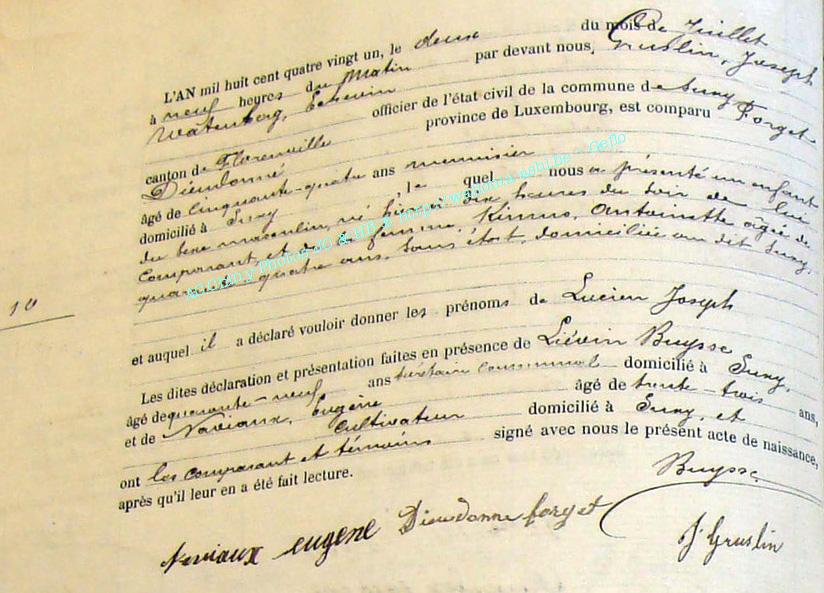 L'AN mil huit cent quatre vingt un, le deux du mois de Juillet
à neuf heures du Matin par devant nous, Gruslin, Joseph
Echevin officier de l'état civil de la commune de Suxy
canton de Florenville province de Luxembourg, est comparu Forget
Dieudonné
âgé de Cinquante-quatre ans menuisier
domicilié à Suxy, le quel nous a présenté un enfant
du sexe masculin, né hier à dix heures du soir de lui
comparant et de sa femme, Antoinette âgée de
quarante quatre ans, sans état, domiciliée au dit Suxy,
10
et auquel il a déclaré vouloir donner les prénoms de Lucien Joseph
Les dites déclaration et présentation faites en présence de Liévin Buysse
âgé de quarante-neuf ans secrétaire communal domicilié à Suxy,
et de Naviaux, Eugène âgé de trente-trois ans,
cultivateur domicilié à Suxy, et
ont les comparant et témoins signé avec nous le présent acte de naissance,
après qu'il leur en a été fait lecture.
Buysse
Naviaux eugene Dieudonne forget
J Gruslin